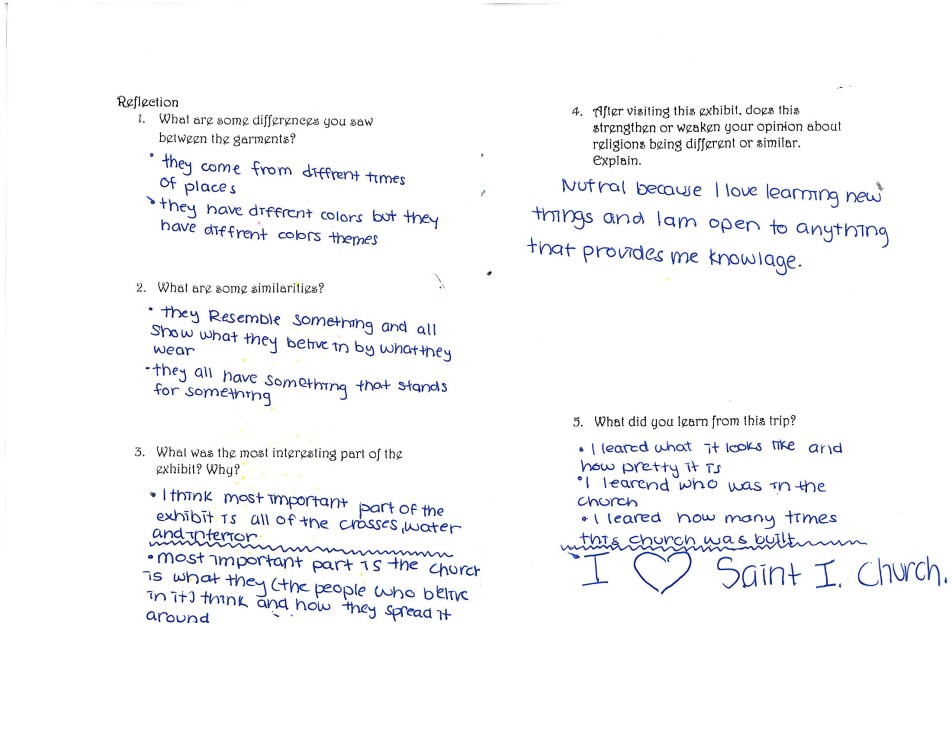 Reflection
1. What are some differences you saw
between the garments?
• they come from diffrent times
of places
• they have diffrent colors but they
have diffrent colors themes
2. What are some similarities?
• they Resemble something and all
show what they belive in by what they
wear
- they all have something that stands
for something
3. What was the most interesting part of the
exhibit? Why?
• I think most important part of the
exhibit is all of the crosses, water
and interior
• most important part is the church
is what they (the people who belive
in it) think and how they spread it
around
4. After visiting this exhibit, does this
strengthen or weaken your opinion about
religions being different or similar.
Explain.
Nutral because I love learning new
things and I am open to anything
that provides me knowlage.
5. What did you learn from this trip?
• I leared what it looks like and
how pretty it is
• I learend who was in the
church
• I leared how many times
this church was built
• I ♡ Saint I. Church.